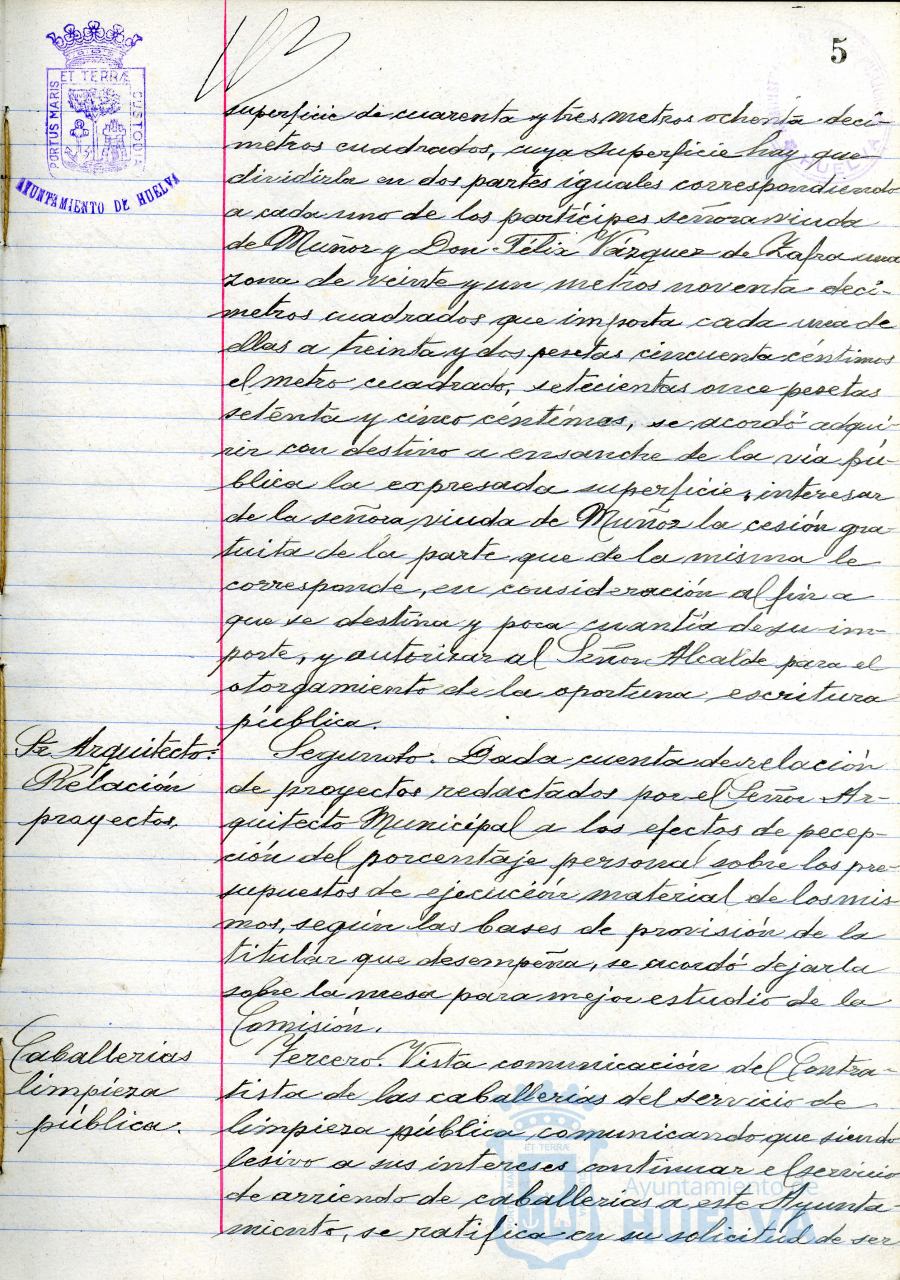 5
ET TERRÆ
PORTUS MARIS
CUSTODIA
AYUNTAMIENTO DE HUELVA
superficie de cuarenta y tres metros ochenta decí-
metros cuadrados, cuya superficie hay que
dividirla en dos partes iguales correspondiendo
a cada uno de los partícipes señora viuda
de Muñoz y Don Félix Vázquez de Zafra una
zona de veinte y un metros noventa decí-
metros cuadrados que importa cada una de
ellas a treinta y dos pesetas cincuenta céntimos
el metro cuadrado, setecientas once pesetas
setenta y cinco céntimos, se acordó adqui-
rir con destino a ensanche de la vía pú-
blica la expresada superficie, interesar
de la señora viuda de Muñoz la cesión gra-
tuita de la parte que de la misma le
corresponde, en consideración al fin a
que se destina y poca cuantía de su im-
porte, y autorizar al Señor Alcalde para el
otorgamiento de la oportuna escritura
pública.
Sr. Arquitecto:
Relación
proyectos.
Segundo. Dada cuenta de relación
de proyectos redactados por el Señor Ar-
quitecto Municipal a los efectos de pecep-
ción del porcentaje personal sobre los pre-
supuestos de ejecución material de los mis-
mos, según las bases de provisión de la
titular que desempeña, se acordó dejarla
sobre la mesa para mejor estudio de la
Comisión.
Caballerias
limpieza
pública.
Tercero. Vista comunicación del Contra-
tista de las caballerías del servicio de
limpieza pública comunicando que siendo
lesivo a sus intereses continuar el servicio
de arriendo de caballerias a este Ayunta-
miento, se ratifica en su solicitud de ser
Ayuntamiento de
HUELVA